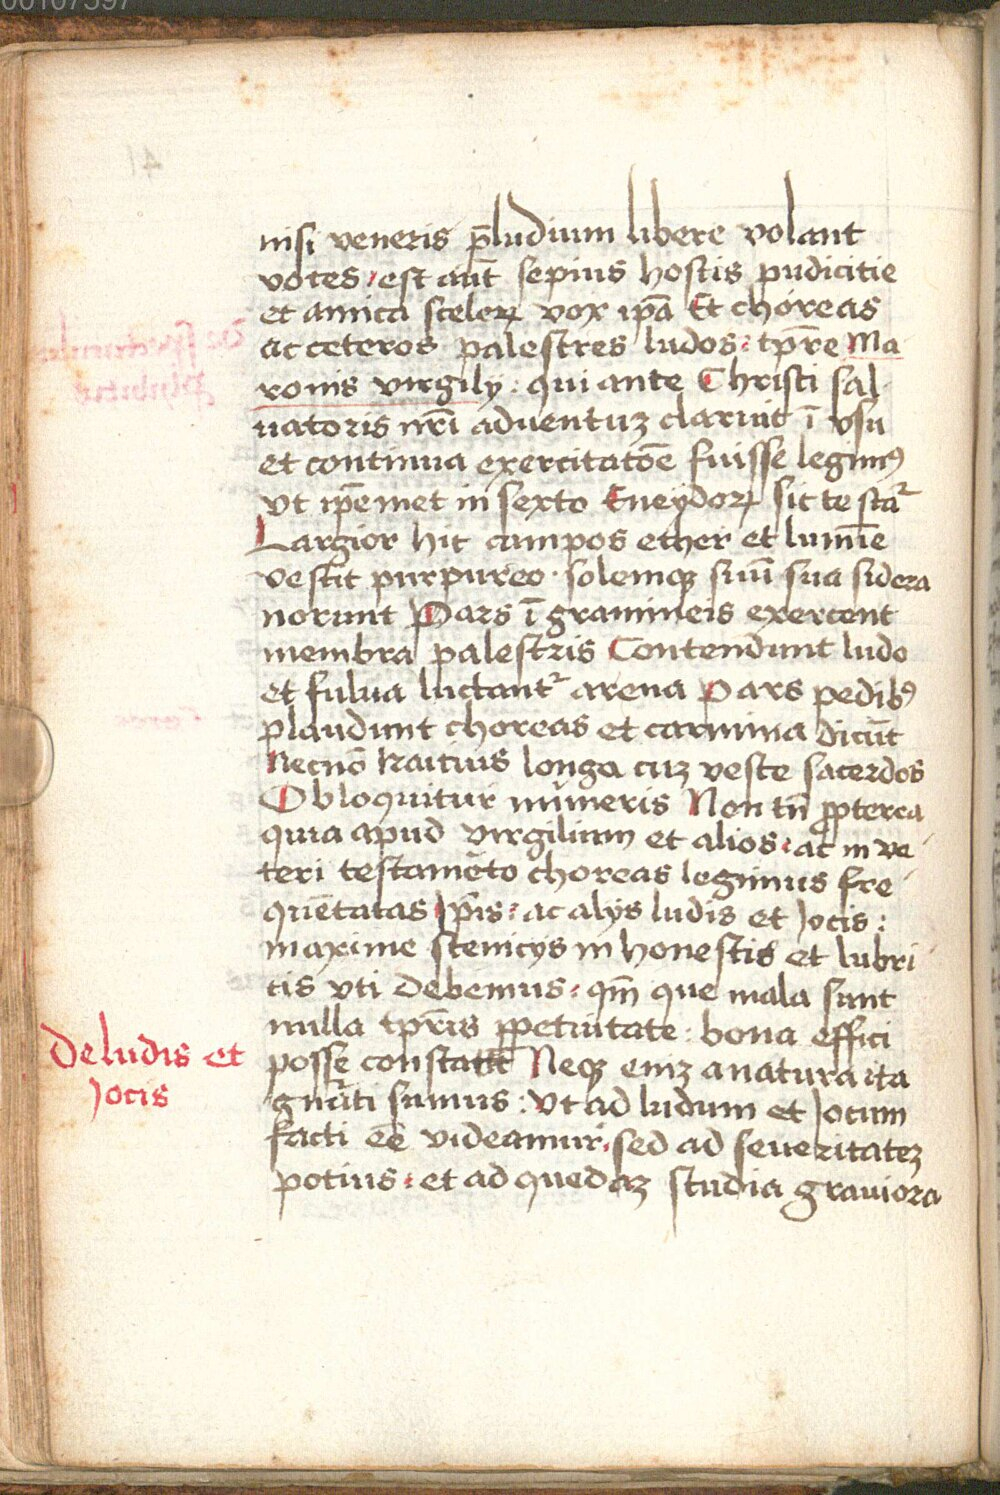 nisi veneris p̄ludium libere volant
votes / est aut̄ sepius hostis pudicitie
et amica sceleꝝ vox ip̄a Et choreas
ac ceteros palestres ludos : tp̄re Ma
ronis virgilij : qui ante Christi sal
uatoris nr̄i aduentuꝫ claruit ī vsu
et continua exercitatōe fuisse legimꝰ
vt ip̄emet in sexto Eneydoꝝ sic testat᷑
Largior hic campos ether et lumīe
vestit purpureo · solemqꝫ suū sua sidera
norunt Pars ī gramineis exercent
membra palestris Contendunt ludo
et fulua luctant᷑ arena Pars pedibꝰ
plaudunt choreas et carmina dicūt
Necnō traitius longa cuꝫ veste sacerdos
Obloquitur numeris Non tn̄ ꝓpterea
quia apud virgilium et alios : ac in ve
teri testamēto choreas legimus fre
quētatas Ip̄is : ac alijs ludis et Jocis :
maxime scenicijs in honestis et lubri
cis vti debemus : qm̄ que mala sunt
nulla tp̄ris ꝑpetuitate : bona effici
posse constant Neqꝫ eniꝫ a natura ita
gn̄ati sumus : vt ad ludum et Jocum
facti eē videamur : sed ad seueritateꝫ
potius : et ad quedaꝫ studia grauiora
De ludis et
Jocis